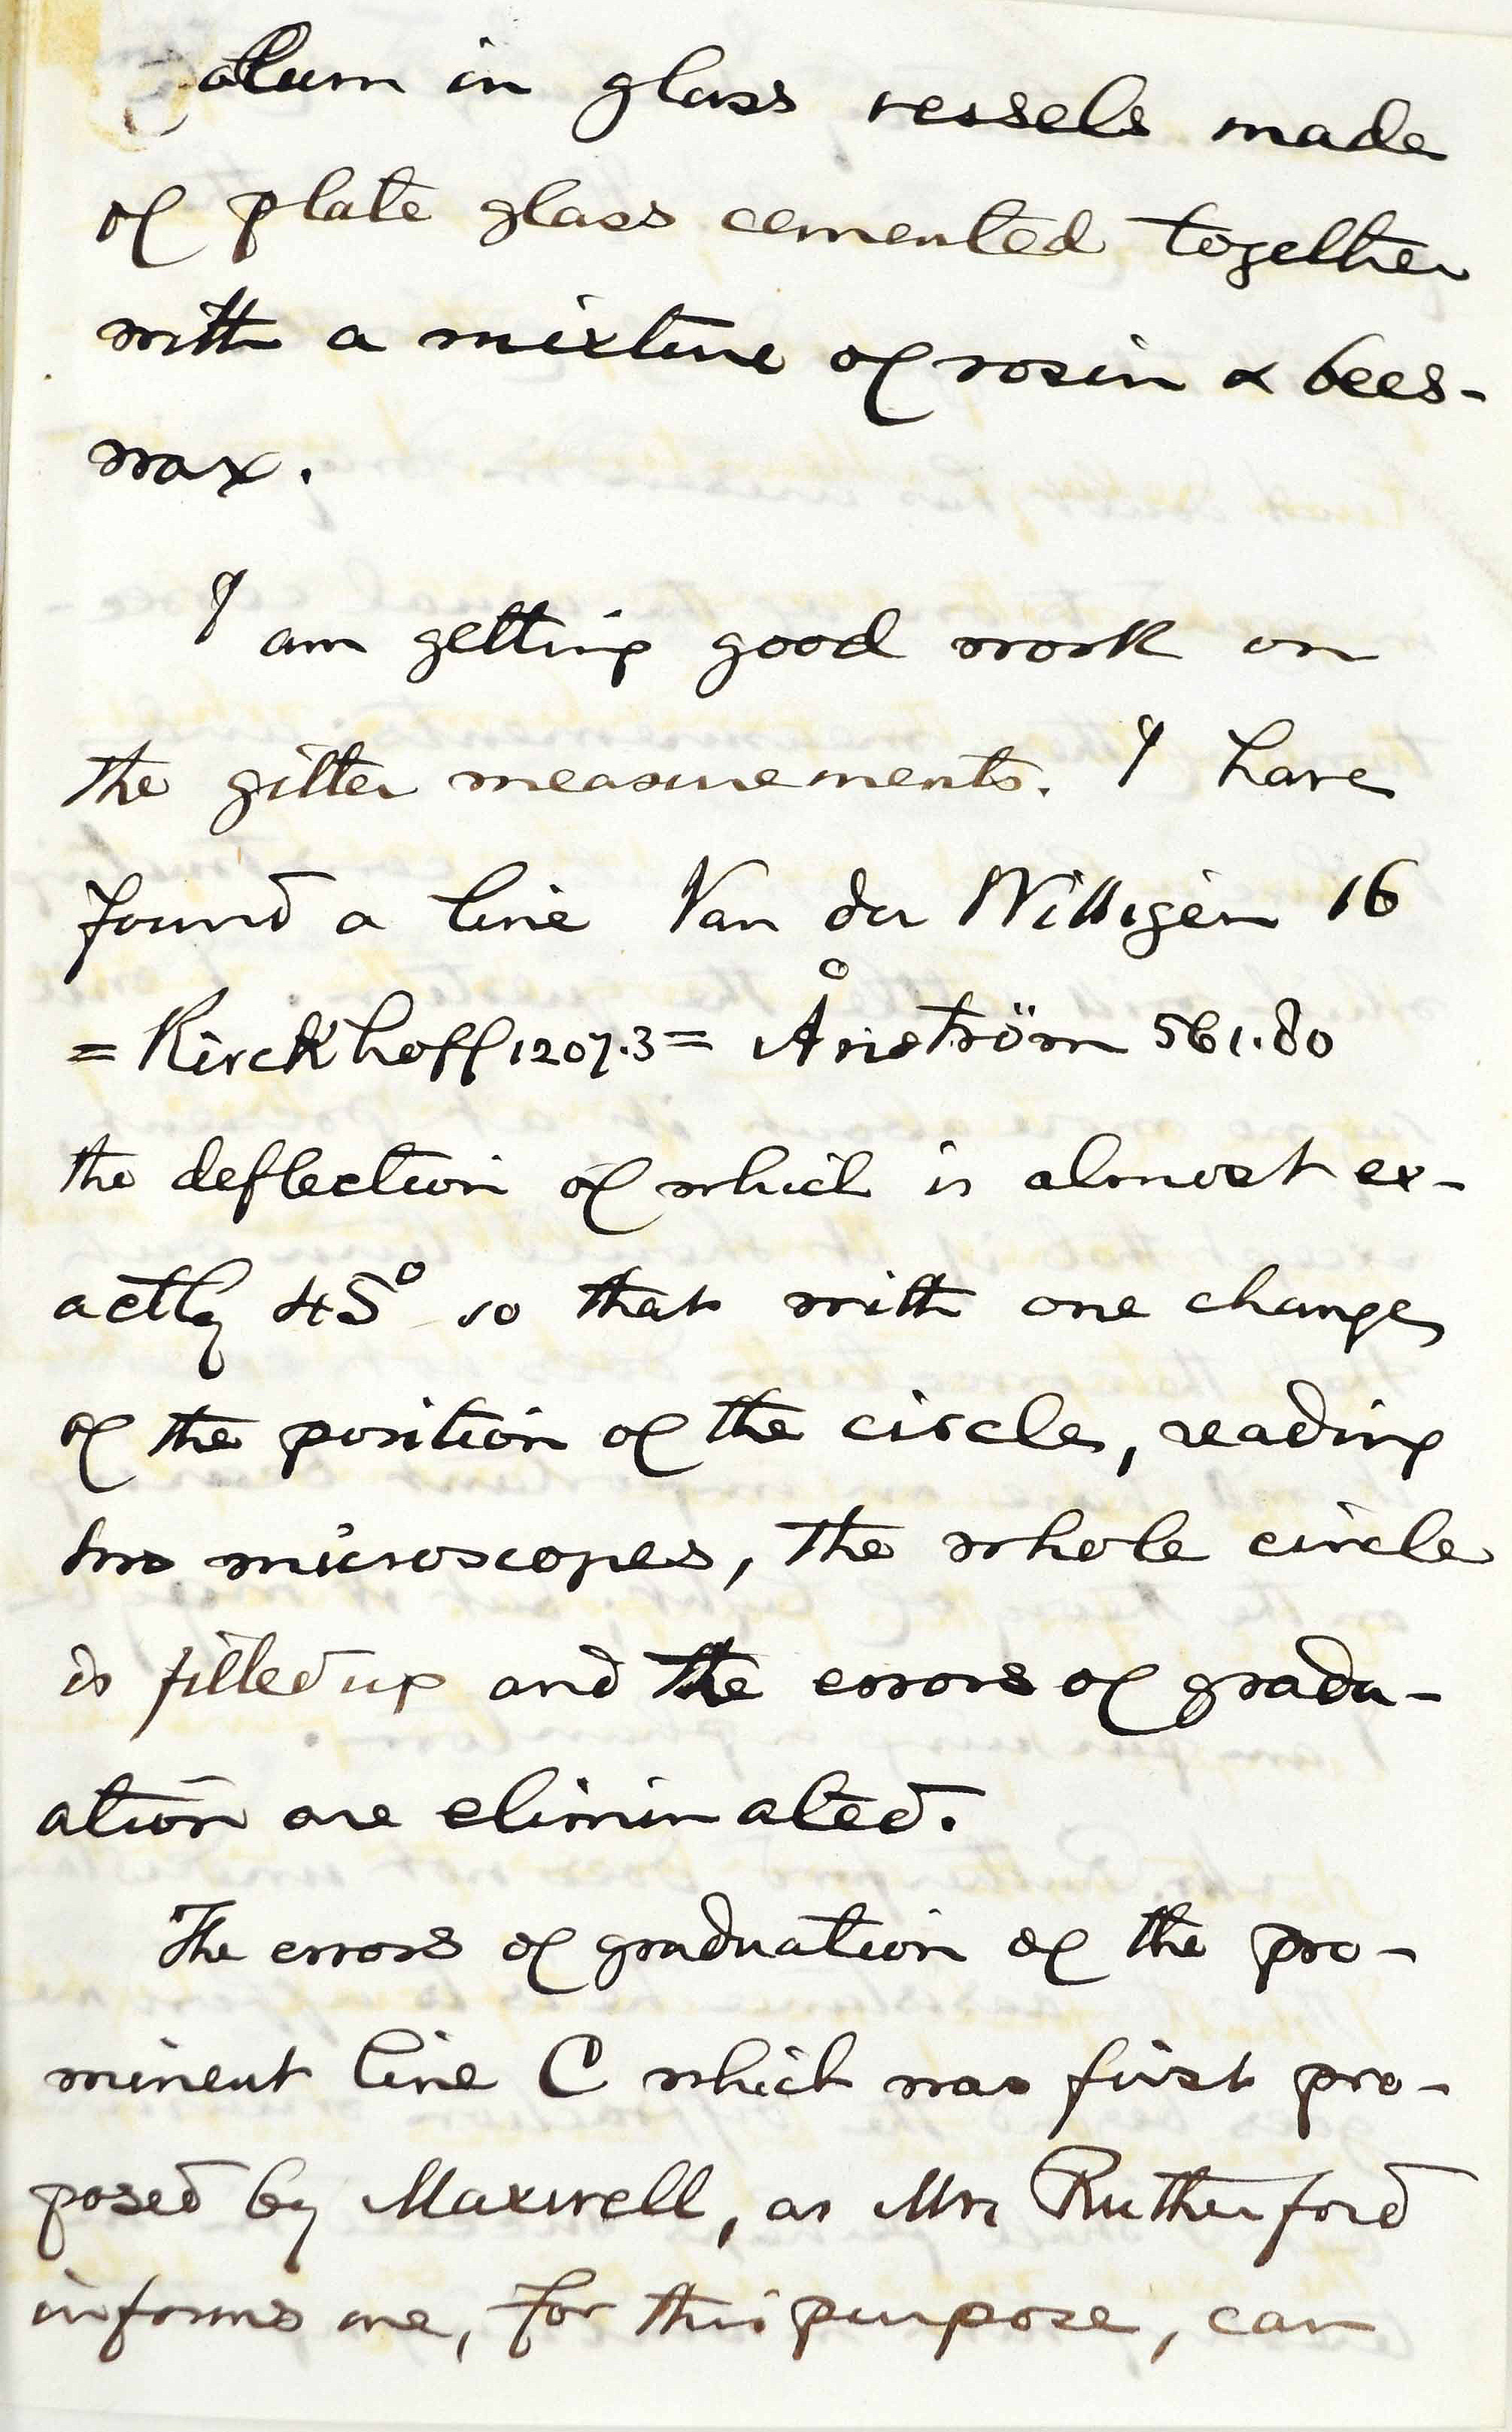 alum in glass vessels made
of plate glass cemented together
with a mixture of rosin & bees-
wax.
I am getting good work on
the gitter measurements. I have
found a line Van der Willigen 16
= Kirckhoff 1207.3 = Ånström 561.80
the deflection of which is almost ex-
actly 45° so that with one change
of the position of the circle, reading
two microscopes, the whole circle
is filled up and the errors of gradu-
ation are eliminated.
The errors of graduation of the pro-
minent line C which was first pro-
posed by Maxwell, as Mr Rutherford
informs me, for this purpose, can